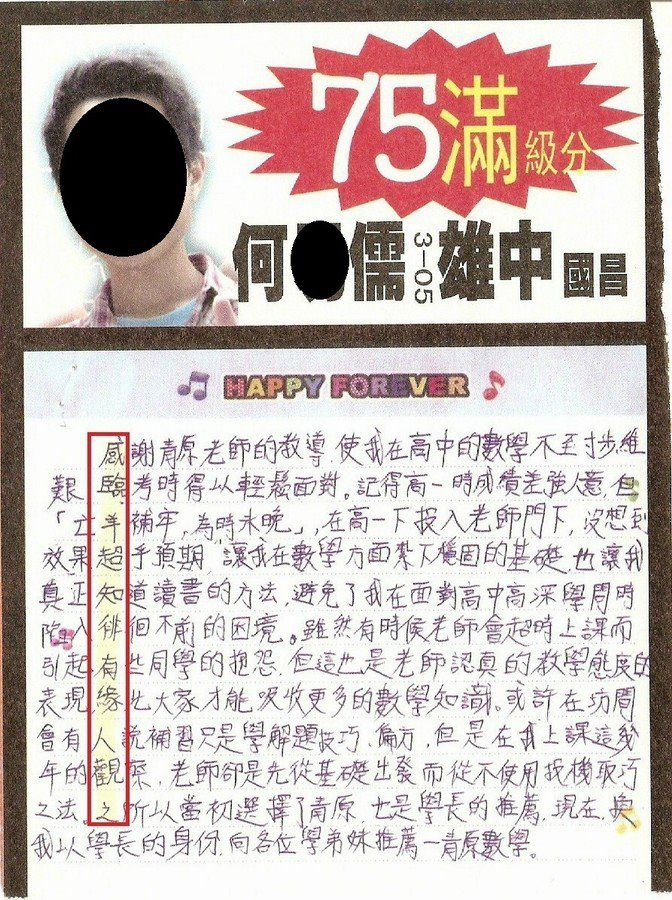 75滿級分
何儒 3-05 雄中 國昌
HAPPY FOREVER
感謝青原老師的教導,使我在高中的數學不至寸步維
艱,臨考時得以輕鬆面對。記得高一時成績差強人意,但
「亡羊補牢,為時未晚」,在高一下投入老師門下,沒想到
效果超乎預期,讓我在數學方面紮下穩固的基礎,也讓我
真正知道讀書的方法,避免了我在面對高中高深學問時
陷入徘徊不前的困境。雖然有時候老師會超時上課而
引起有些同學的抱怨,但這也是老師認真的教學態度的
表現,緣此大家才能吸收更多的數學知識。或許在坊間
會有人說補習只是學解題技巧、偏方,但是在我上課這幾
年的觀察,老師卻是先從基礎出發而從不使用投機取巧
之法。之所以當初選擇了青原,也是學長的推薦,現在,換
我以學長的身份,向各位學弟妹推薦—青原數學。